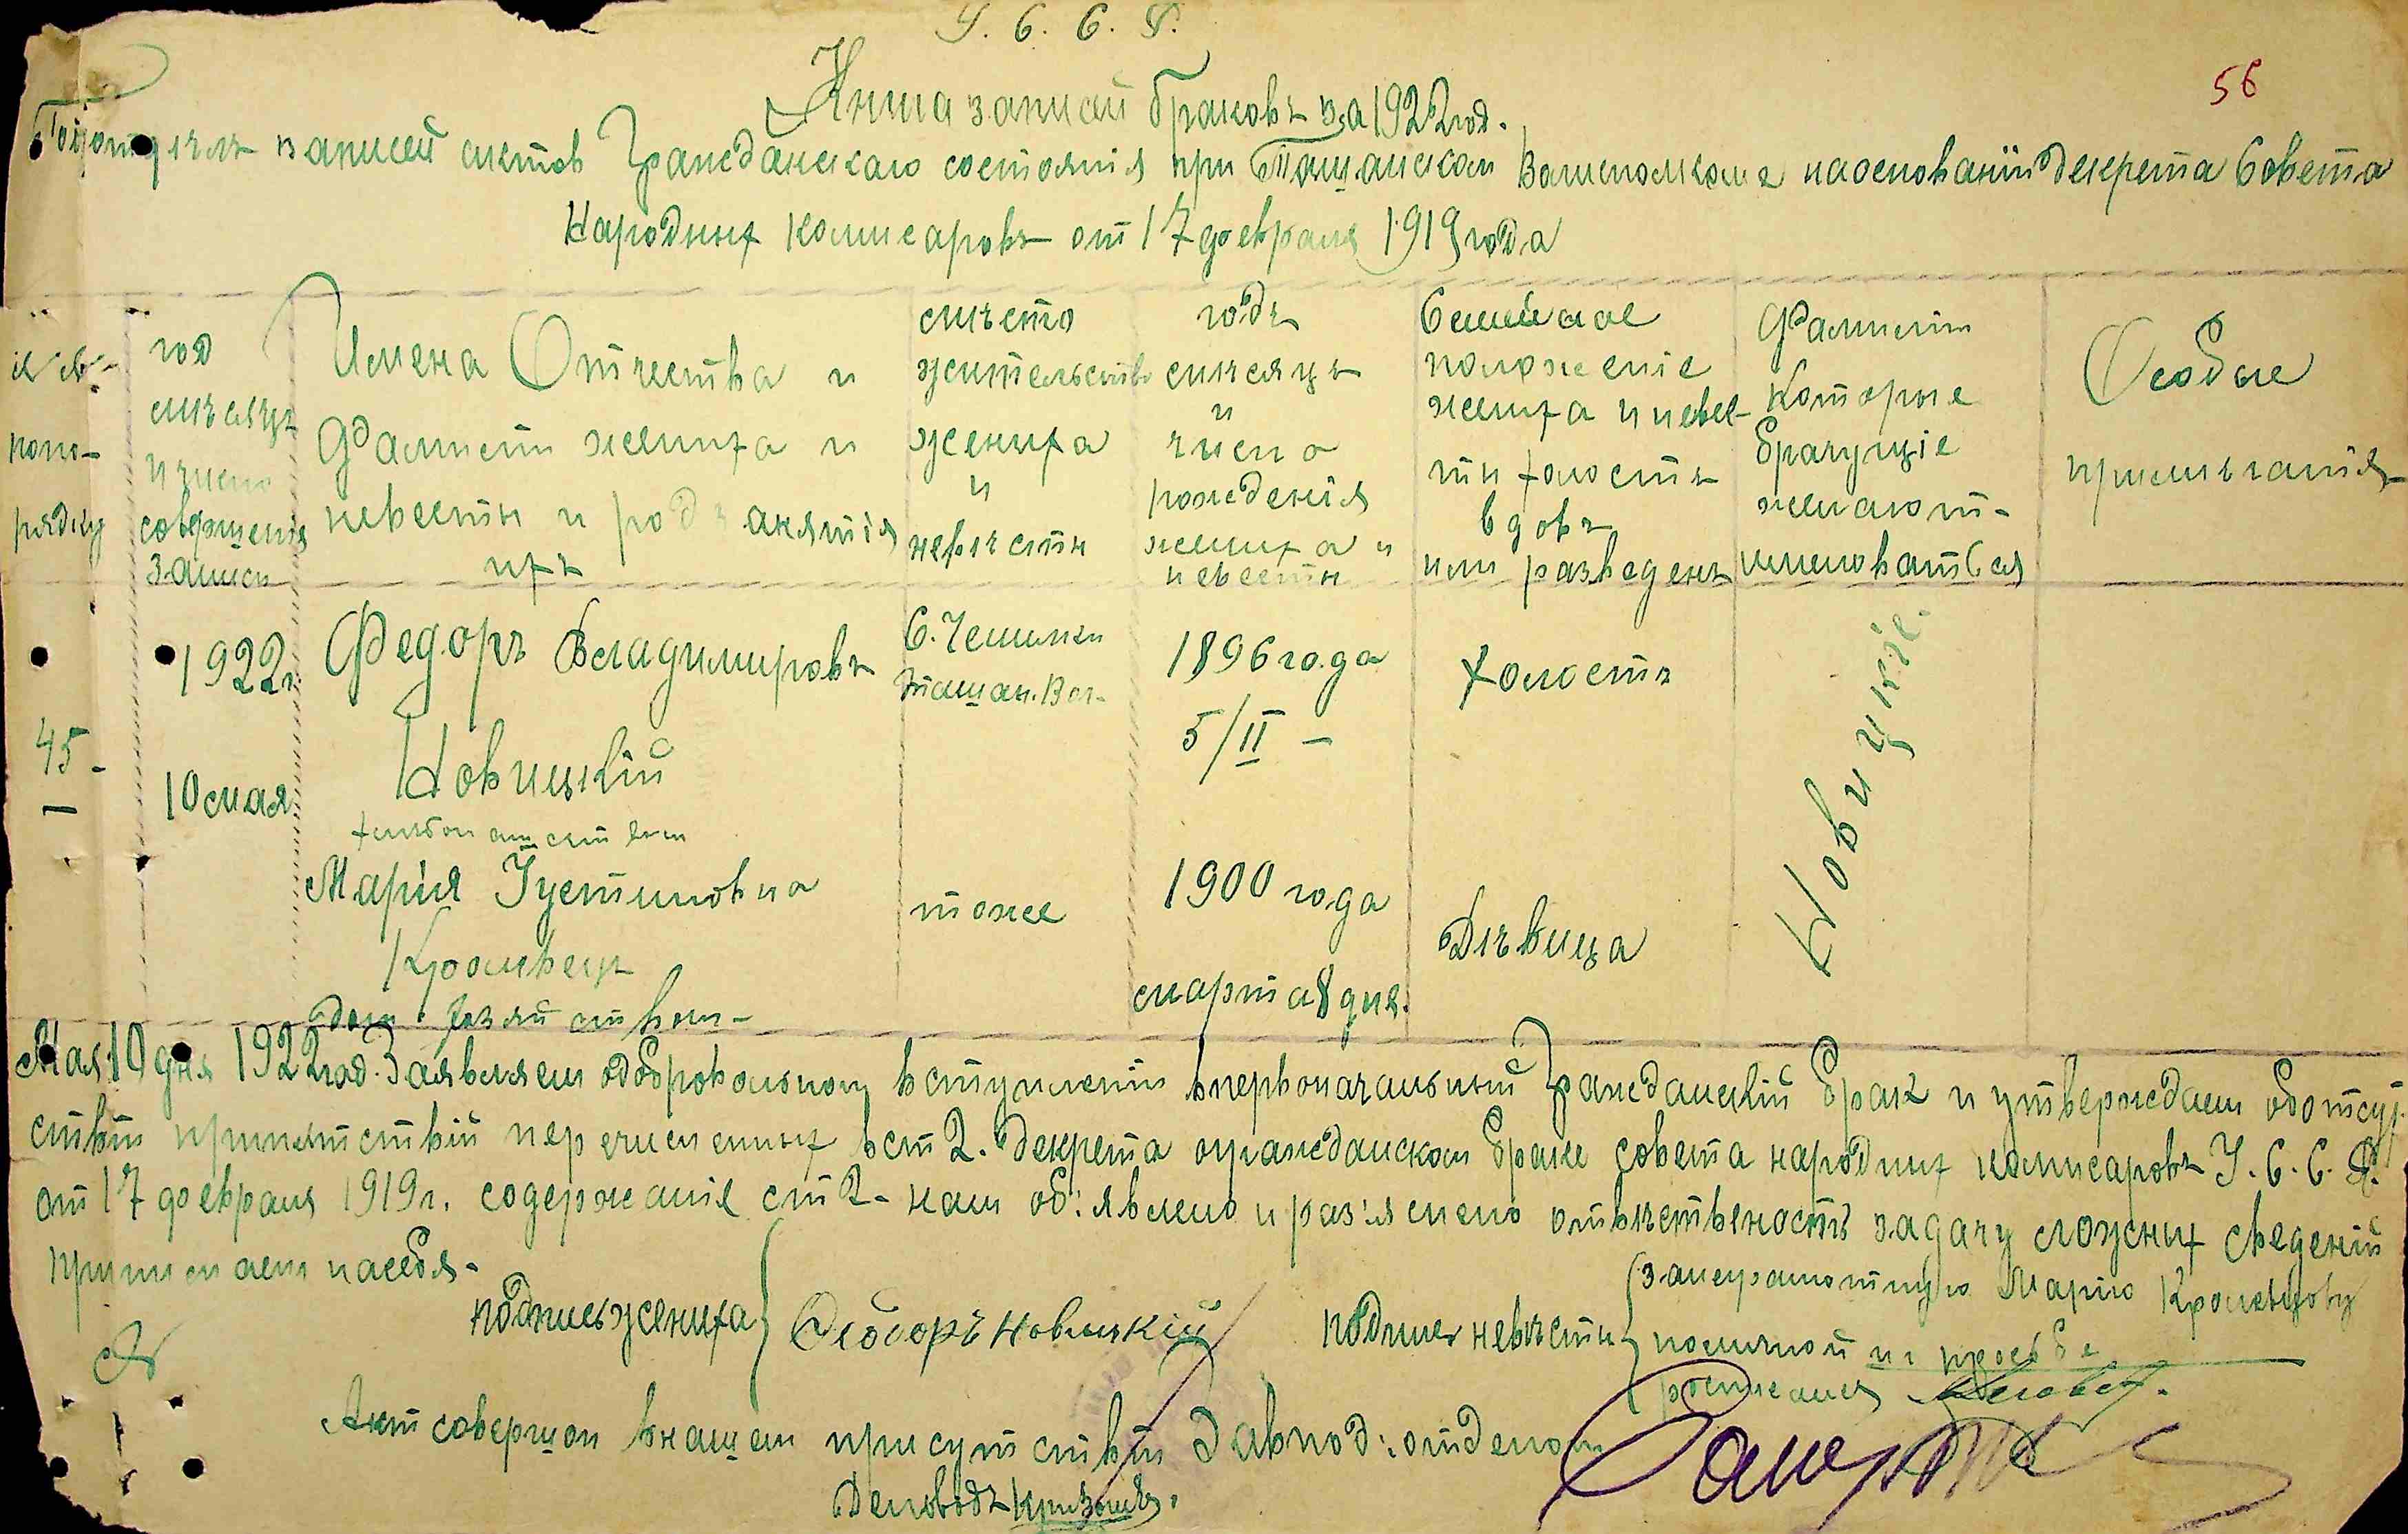 У. С. С. Р.
56
Книга записи браковъ за 1922 год.
записей актов Гражданскаго состоянія при Ташанском Волисполкоме на основаніи Декрета Совета
Народных комисаровъ от 17 февраля 1919 года
№№ попо-рядку
год мѣсяцъ и число совершенія записи
Имена Отчества и Фамиліи жениха и невесты и родъ анятія ихъ
мѣсто жительство жениха и невѣсты
годъ мѣсяцъ и число рожденія жениха и невесты
Семейное положеніе жениха и невес-ты холостъ вдовъ или разведенъ
Фамиліи Которые брачущіе желают-именоватся
Особые примѣчанія
45-
1922г.
10 мая
Федоръ Владимировъ
Новицкій
хлибопашеством
С. Чешинки
Ташан. Вол-
1896 года
5/II -
холостъ
Новицкіе.
Марія Іустиновна
Кромвецъ
дом. хозяйством-
тоже
1900 года
марта 8 дня.
Дѣвица
Мая 10 дня 1922 год. Заявляем одобровольном вступленіи впервоначальный Гражданскій бракъ и утверждаем оботсут
ствіи препятствій перечисленных вст 2. Декрета огражданском браке совета народных комисаровъ У. С. С. Р.
от 17 февраля 1919 г. содержаніе ст 2- нам об:явлено и раз:яснено отвѣтвеность задачу ложных сведеній
принимаем насебя-
подпись жениха { Федоръ Новицкій
подпись невѣсты { занеграмотную Марію
поличной ея просьбе
росписался
Акт совершон внашем присутствіи Завпод:отделом
Деловодъ